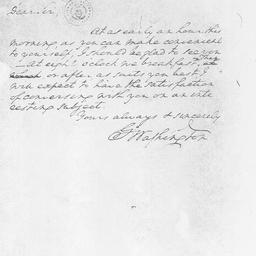 Dear sir,
At as early an hour this
morning as you can make convenient
to yourself, I should be glad to see you
At eight o'clock we breakfast, then
or after as suits you best, I
will expect to have the satisfaction
of conversing with you on an inte
resting subject.
Yours always & sincerely
G Washington